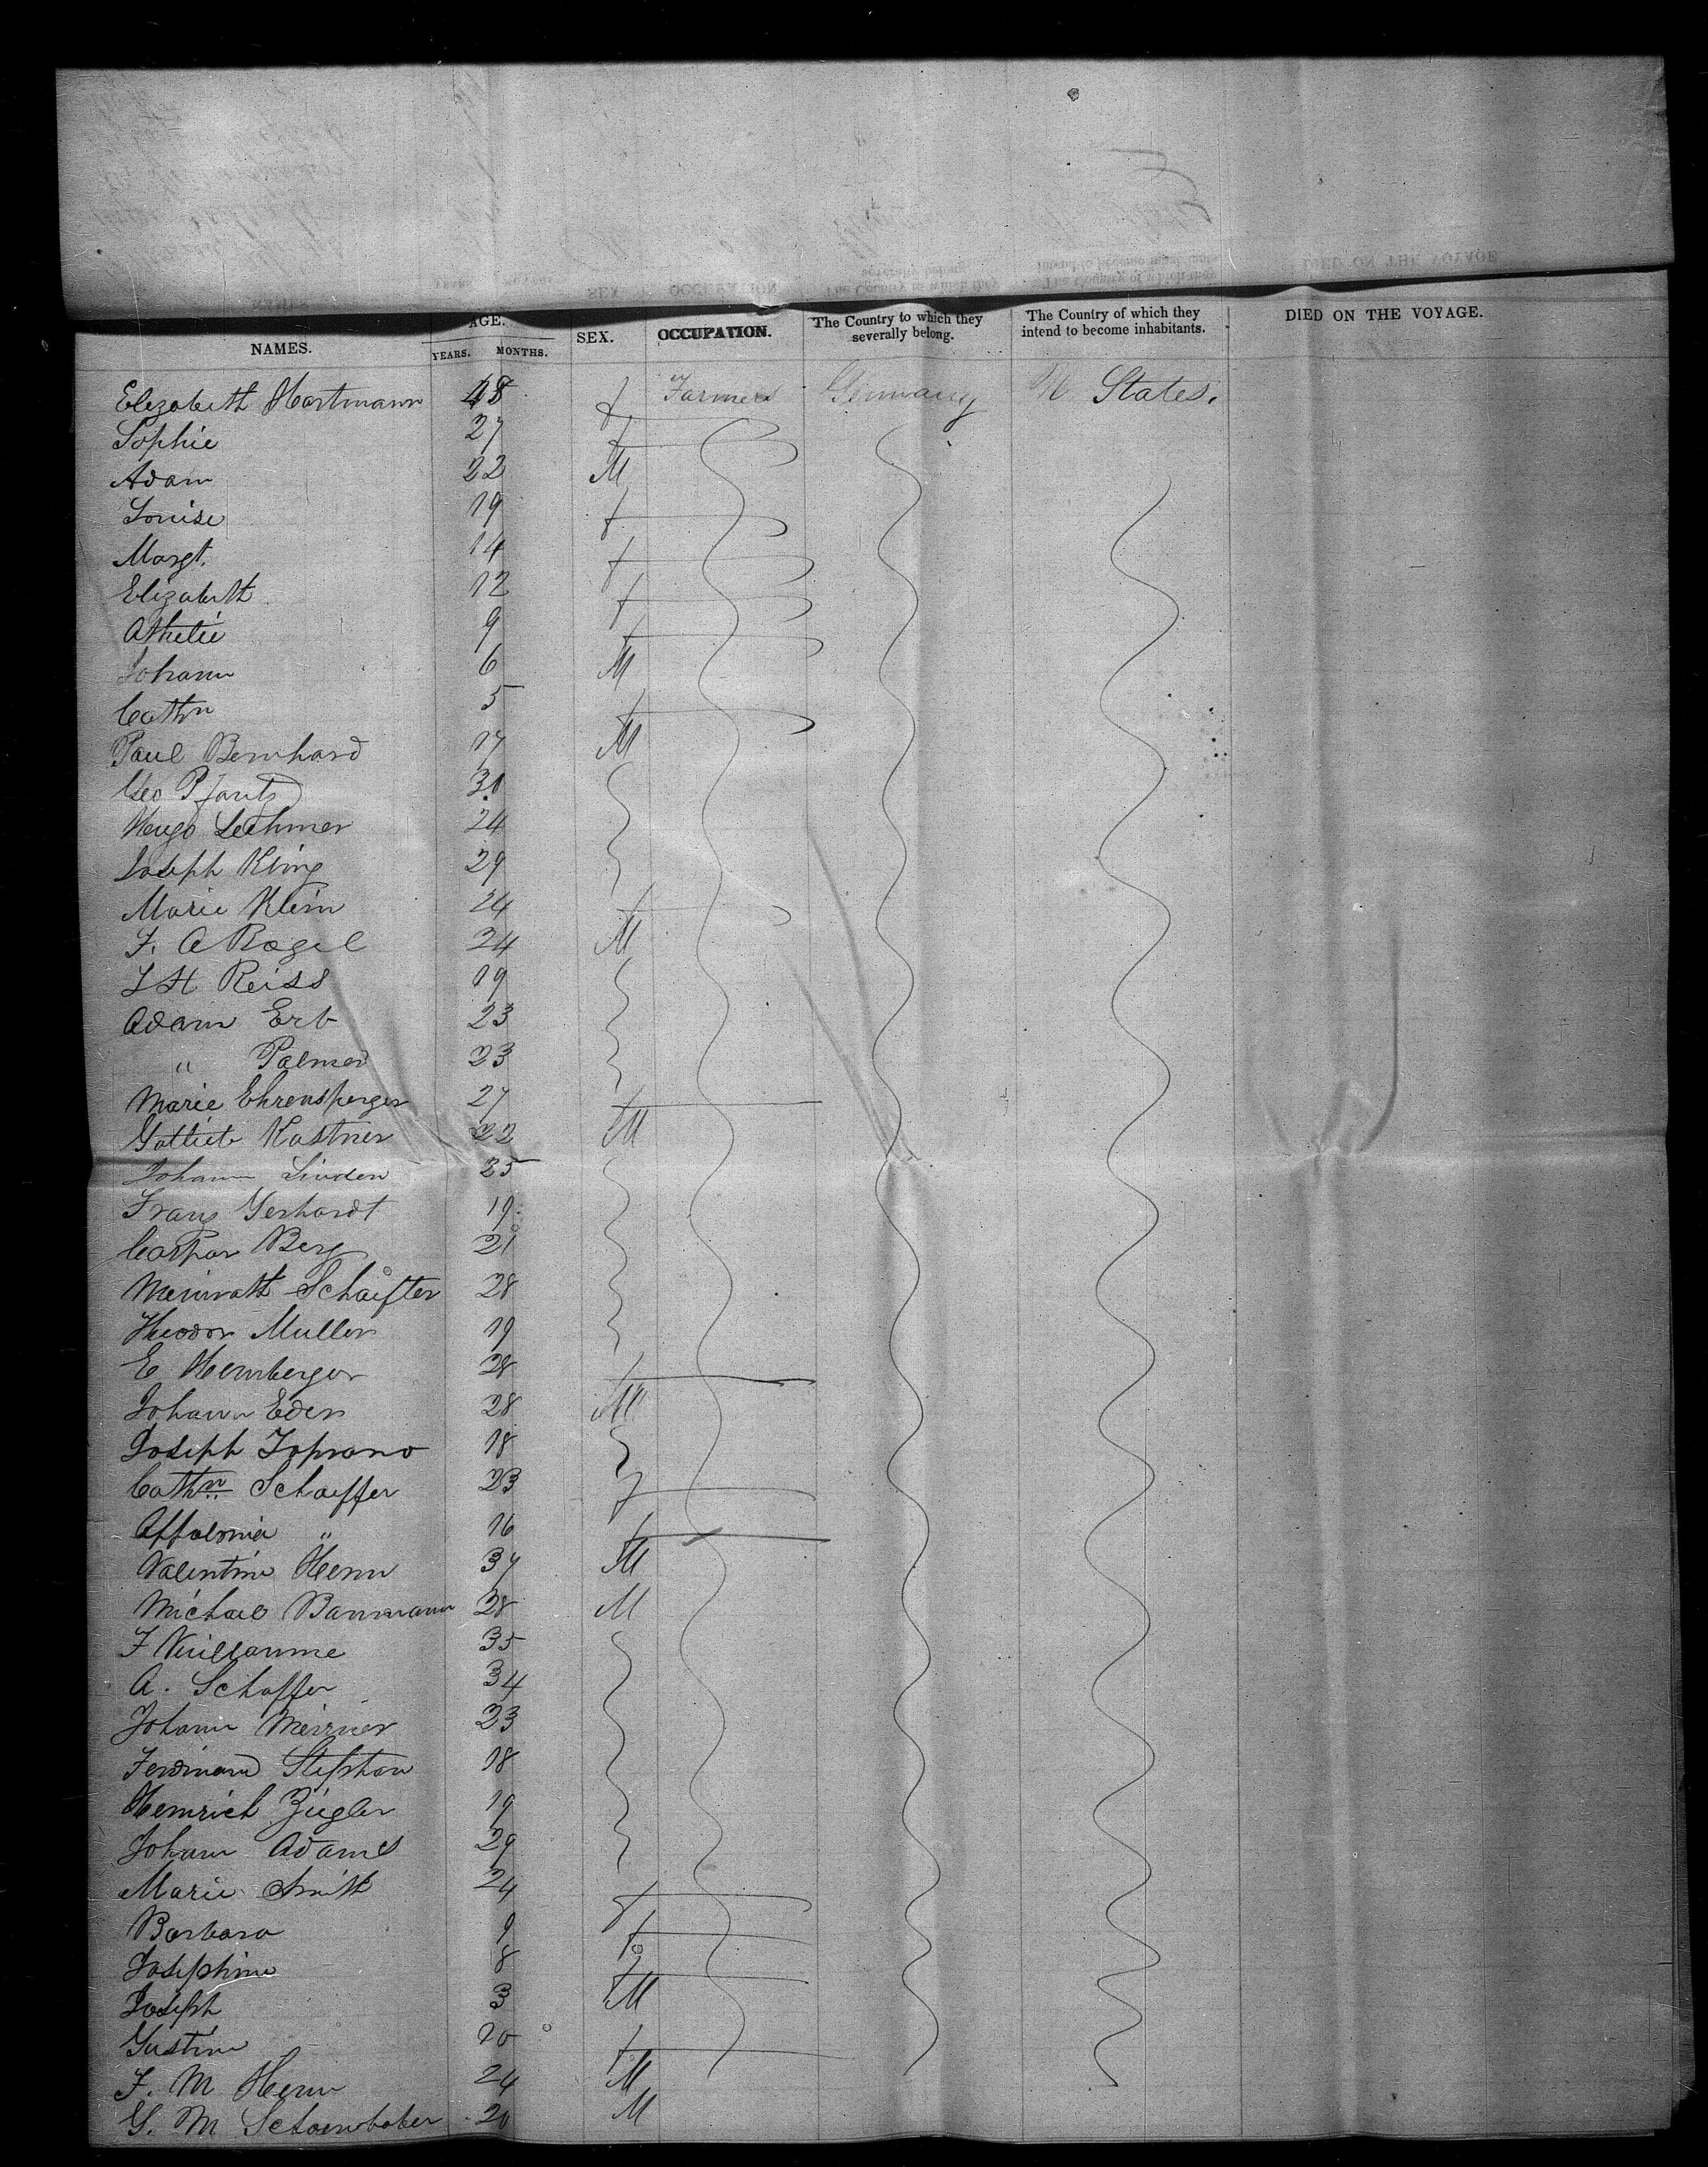 NAMES. AGE. YEARS. MONTHS. SEX. OCCUPATION. The Country to which they severally belong. The Country of which they intend to become inhabitants. DIED ON THE VOYAGE.
Elizabeth Hartmann 48 f Farmers Germany U States.
Sophie 27 f
Adam 22 M
Louise 19 f
Margt. 14 f
Elizabeth 12 f
9 f
Johann 6 M
Cathn 5 f
Paul Bernhard 17 M
Geo Pfantz 30
Hugo Lechmer 24
Joseph Kling 29
Marie Klein 24 f
F. A Bagel 24 M
L H Reiss 19
Adam Erb 23
" Palmer 23
Marie Ehrensperger 27 f
Gottlieb Kastner 22 M
Johann Linden 25
Franz Gerhardt 19
Caspar Berg 21
Meinrath Schaifter 28
Theodor Muller 19
E Hernberger 28 f
Johann Eder 28 M
Joseph Soprano 18
Cathn Schaeffer 23 f
Appolonia " 16 f
Valentin Henn 37 M
Michael Baumann 28 M
F Vuillaume 35
A. Schaffer 34
Johann Meixner 23
Ferdinand Stephan 18
Heinrich Ziegler 19
Johann Adams 29
Marie Smith 24 f
Barbara 9 f
Josephine 8 f
Joseph 3 M
Justine 20 f
F. M Henn 24 M
G. M Schoenhaber 20 M